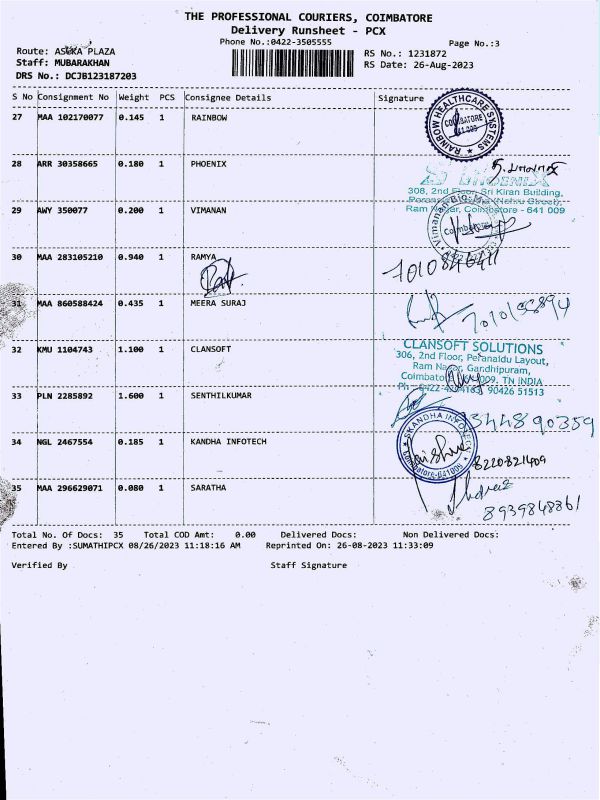 THE PROFESSIONAL COURIERS, COIMBATORE
Delivery Runsheet - PCX
Phone No.:0422-3505555
Page No.:3
Route: ASOKA PLAZA
RS No.: 1231872
Staff: MUBARAKHAN
RS Date: 26-Aug-2023
DRS No.: DCJB123187203
S No Consignment No Weight PCS Consignee Details Signature
27 MAA 102170077 0.145 1 RAINBOW
RAINBOW HEALTHCARE SYSTEMS
COIMBATORE
641 009
28 ARR 30358665 0.180 1 PHOENIX
PHOENIX
308, 2nd Floor, Sri Kiran Building,
(Nehru Street),
Ram Nagar, Coimbatore - 641 009
29 AWY 350077 0.200 1 VIMANAN
Coimbatore
30 MAA 283105210 0.940 1 RAMYA
31 MAA 860588424 0.435 1 MEERA SURAJ
32 KMU 1104743 1.100 1 CLANSOFT
CLANSOFT SOLUTIONS
306, 2nd Floor, Peranaidu Layout,
Ram Nagar, Gandhipuram,
Coimbatore 641 009. TN INDIA
90426 51513
33 PLN 2285892 1.600 1 SENTHILKUMAR
34 NGL 2467554 0.185 1 KANDHA INFOTECH
SKANDHA INFOTECH
Coimbatore-641009
8220821409
35 MAA 296629071 0.080 1 SARATHA
8939848861
Total No. Of Docs: 35 Total COD Amt: 0.00 Delivered Docs: Non Delivered Docs:
Entered By :SUMATHIPCX 08/26/2023 11:18:16 AM Reprinted On: 26-08-2023 11:33:09
Verified By Staff Signature